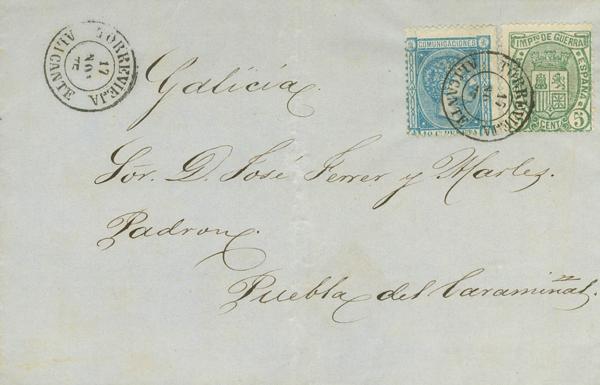 TORREVIEJA
17
NOV
75
ALICANTE
COMUNICACIONES
10 Cs PESETA
IMPTO DE GUERRA
ESPAÑA
5
CENTS
TORREVIEJA
17
ALICANTE
Galicia
Sor. D. José Ferrer y Marles.
Padron
Puebla del Caramiñal.